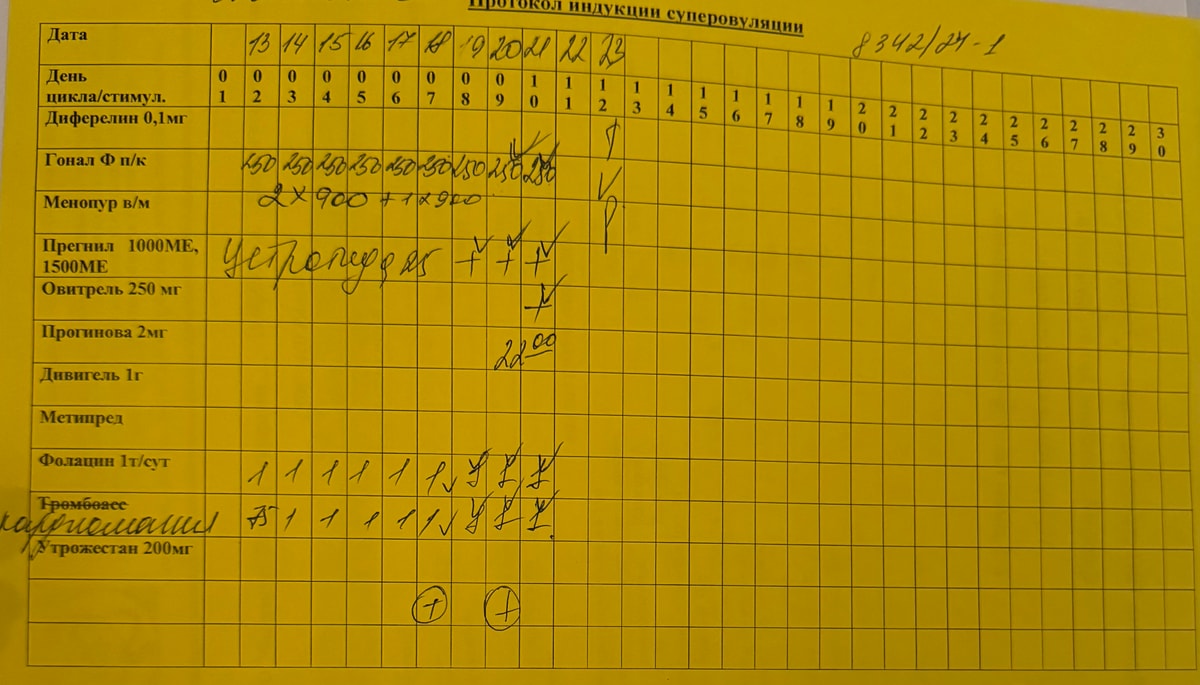 Протокол индукции суперовуляции
8342/24-1
Дата 13 14 15 16 17 18 19 20 21 22 23
День цикла/стимул. 01 02 03 04 05 06 07 08 09 10 11 12 13 14 15 16 17 18 19 20 21 22 23 24 25 26 27 28 29 30
Диферелин 0,1мг
Гонал Ф п/к 250 250 250 250 250 250 250 250 250
Менопур в/м 2 х 900 + 1 х 900
Прегнил 1000МЕ,
1500МЕ Цетротид 0,25 + + +
Овитрель 250 мг +
Прогинова 2мг 22 00
Дивигель 1г
Метипред
Фолацин 1т/сут 1 1 1 1 1 1 1 1 1
Тромбоасс
кардиомагнил 75 1 1 1 1 1 1 1 1
Утрожестан 200мг
+ +